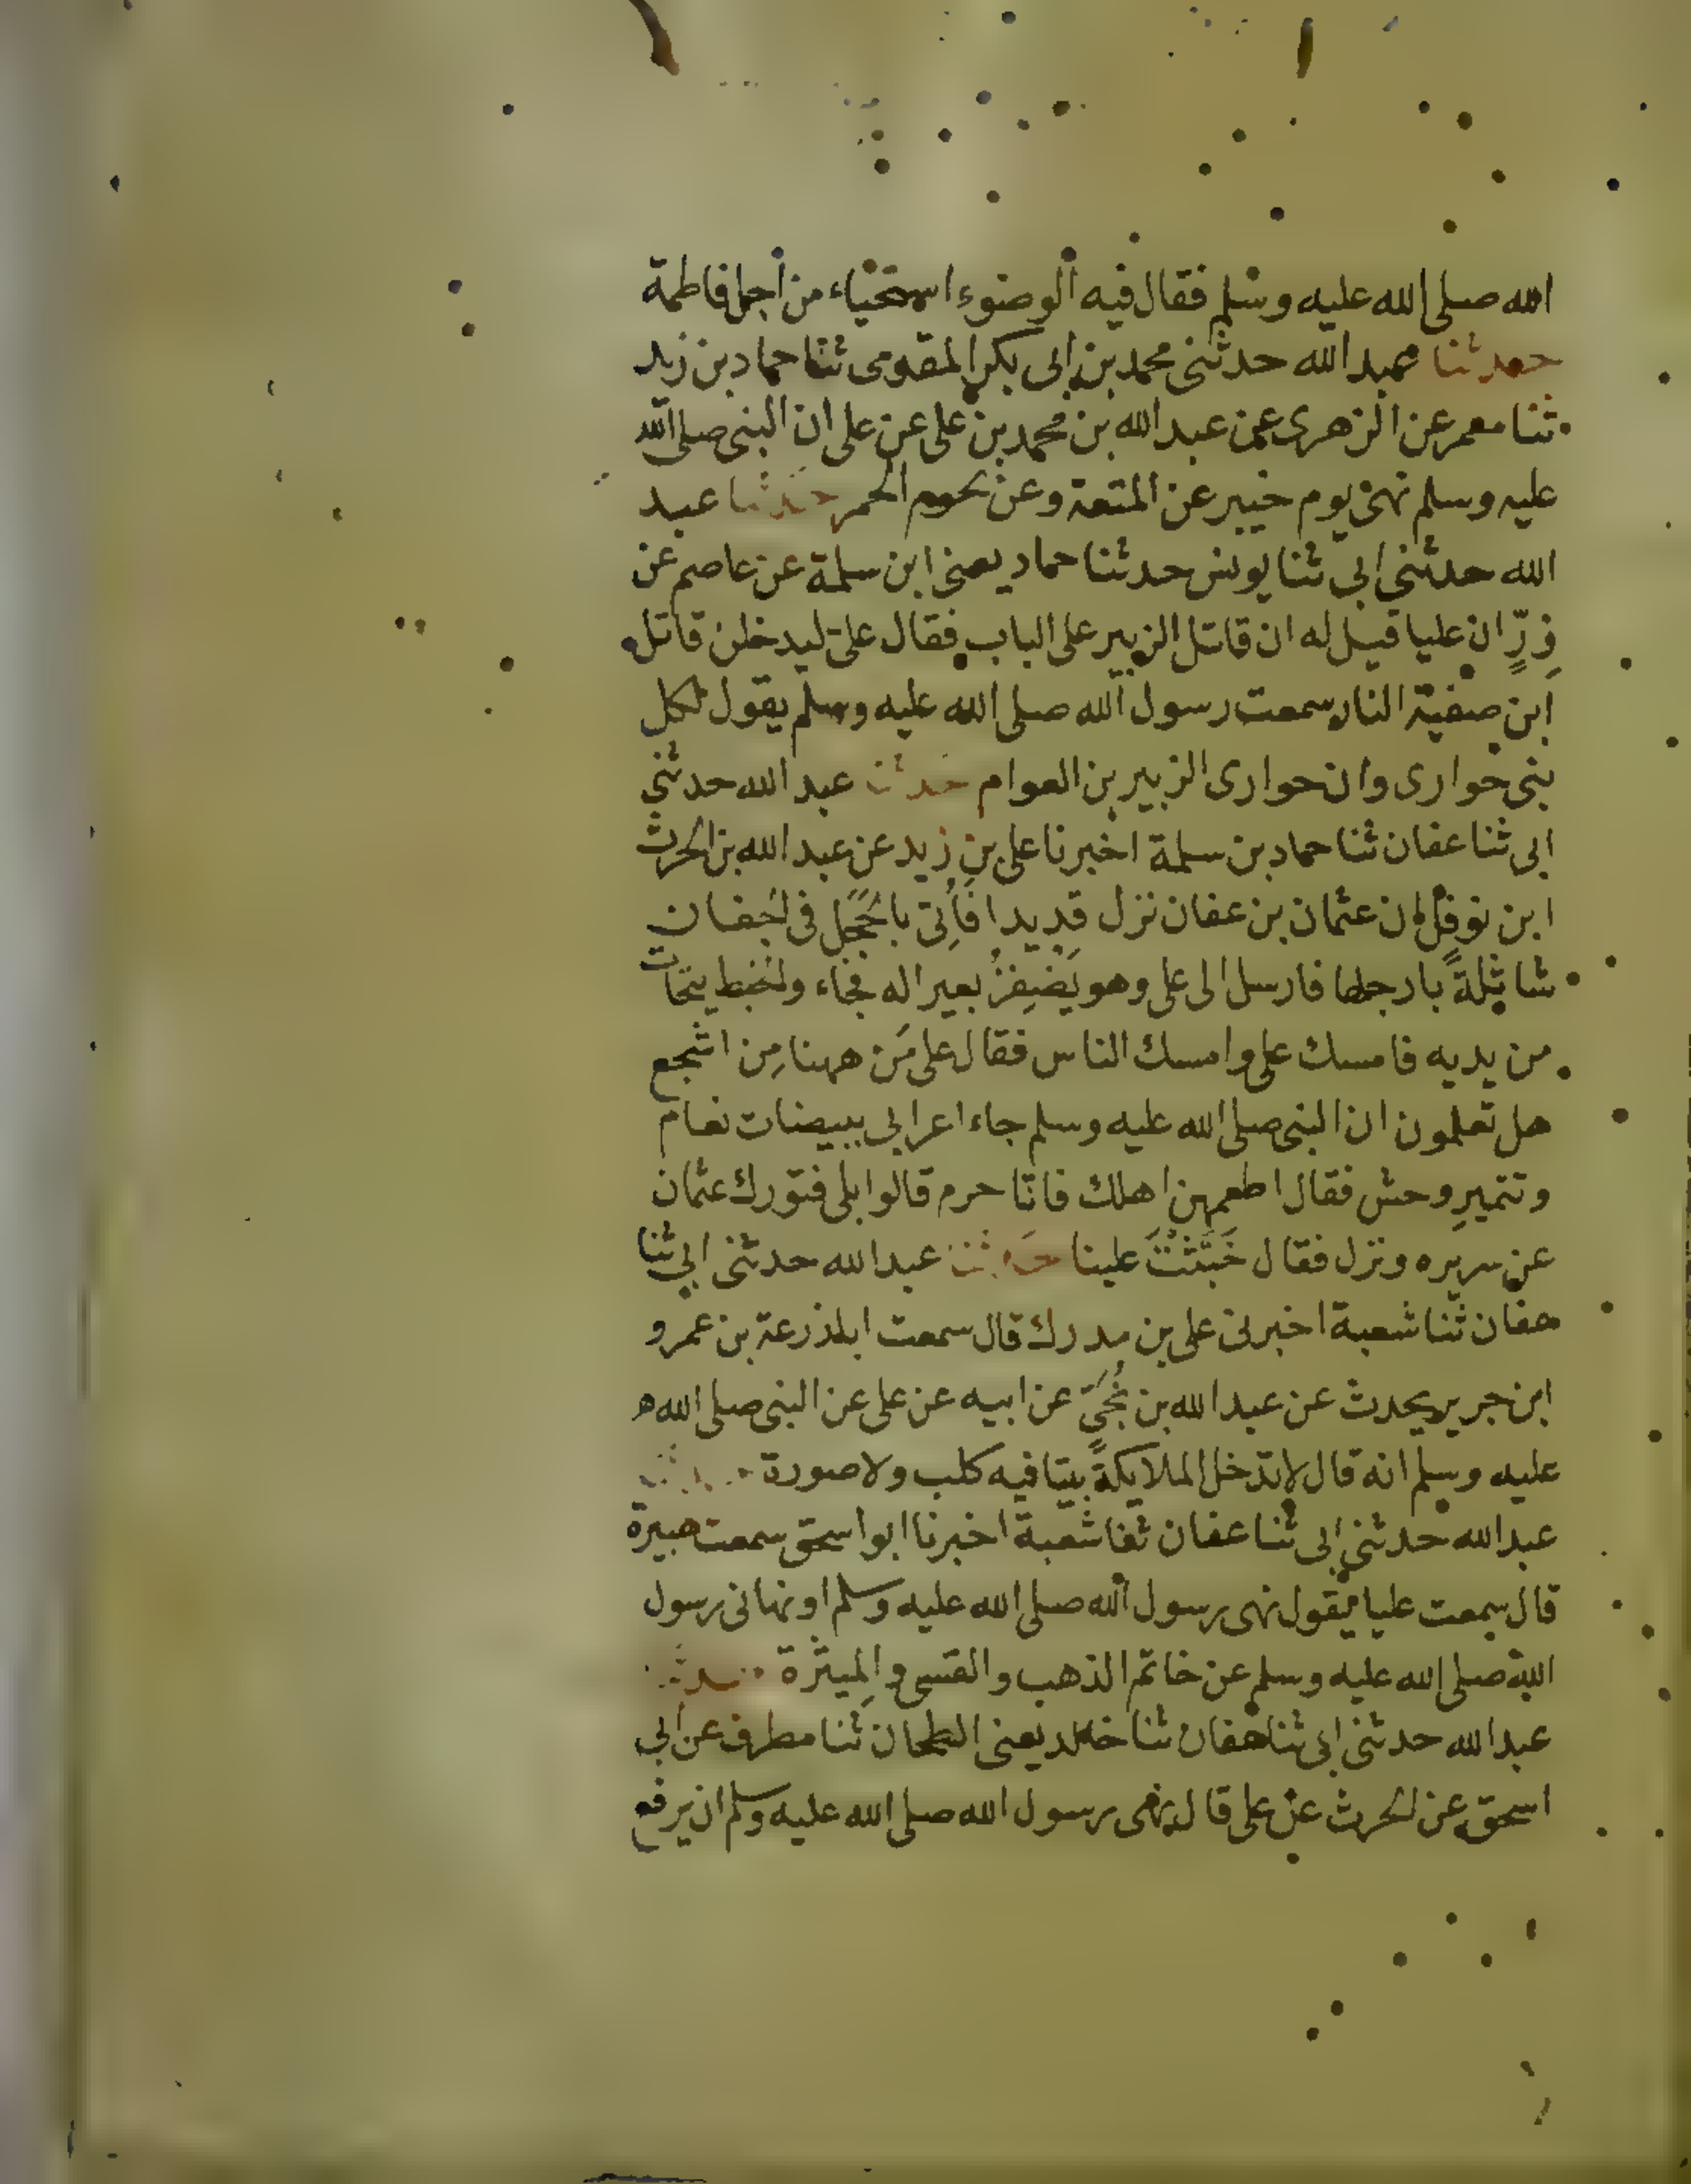 الله صلى الله عليه وسلم فقال فيه الوضوء استحياء من أجل فاطمة
حدثنا عبد الله حدثنى محمد بن ابى بكر المقدمى ثنا حماد بن زيد
ثنا معمر عن الزهرى عن عبد الله بن محمد بن على عن على ان النبى صلى الله
عليه وسلم نهى يوم خيبر عن المتعة وعن لحوم الحمر حدثنا عبد
الله حدثنى ابى ثنا يونس حدثنا حماد يعنى ابن سلمة عن عاصم عن
زِرٍّ ان عليا قيل له ان قاتل الزبير على الباب فقال على ليدخلن قاتل
ابن صفية النار سمعت رسول الله صلى الله عليه وسلم يقول لكل
نبى حوارى وان حوارى الزبير بن العوام حدثنا عبد الله حدثنى
ابى ثنا عفان ثنا حماد بن سلمة اخبرنا على بن زيد عن عبد الله بن الحرث
ابن نوفل ان عثمان بن عفان نزل قديدا فأتى بالحجل فى الجفان
شائلةً بارجلها فارسل الى على وهو يَضفِزُ بعيرا له فجاء والخبط يتحات
من يديه فامسك على وامسك الناس فقال على مَن ههنا مِن اشجع
هل تعلمون ان النبى صلى الله عليه وسلم جاء اعرابى ببيضات نعام
وتتمير وحش فقال اطعمهن اهلك فانا حرم قالوا بلى فتورك عثمان
عن سريره ونزل فقال خَبَّثْتَ علينا حدثنا عبد الله حدثنى ابى ثنا
عفان ثنا شعبة اخبرنى على بن مدرك قال سمعت ابا زرعة بن عمرو
ابن جرير يحدث عن عبد الله بن نُجَىٍّ عن ابيه عن على عن النبى صلى الله
عليه وسلم انه قال لا تدخل الملايكةُ بيتا فيه كلب ولا صورة حدثنا
عبد الله حدثنى ابى ثنا عفان ثنا شعبة اخبرنا ابو اسحق سمعت هبيرة
قال سمعت عليا يقول نهى رسول الله صلى الله عليه وسلم او نهانى رسول
الله صلى الله عليه وسلم عن خاتم الذهب والقسى والمِيثرة حدثنا
عبد الله حدثنى ابى ثنا عفان ثنا خالد يعنى الطحان ثنا مطرف عن ابى
اسحق عن الحرث عن على قال نهى رسول الله صلى الله عليه وسلم ان يرفع